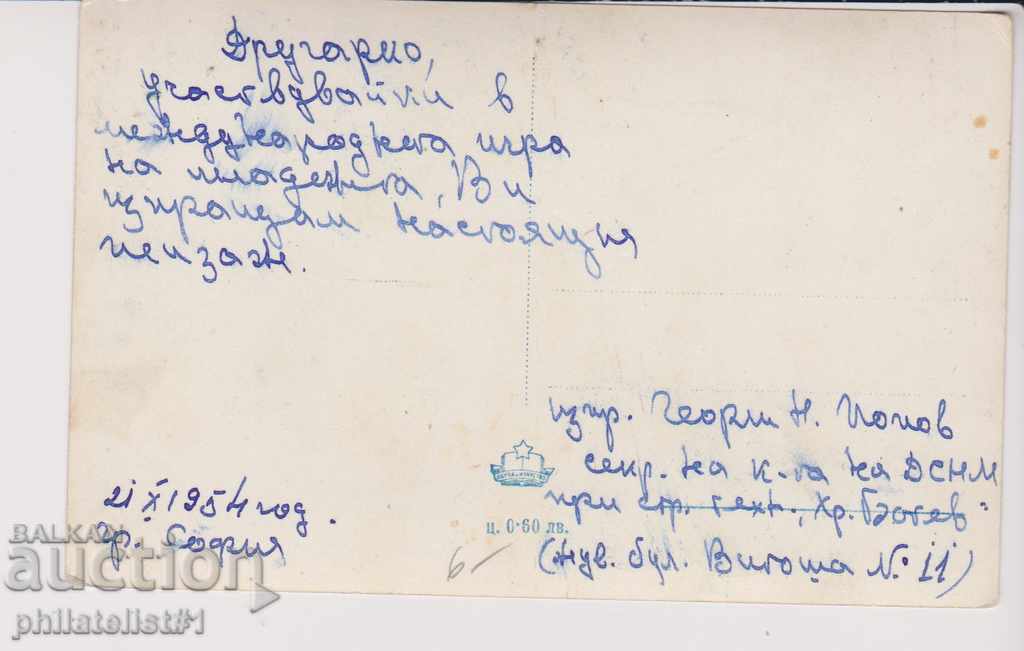 Другарю,
участвдвайки в
международната игра
на младежта, Ви
изпращам настоящия
пейзаж.
21 X 1954 год.
гр. София
изпр. Георги Н. Попов
секр. на к-та на ДСНМ
при стр. техн. „Хр. Ботев"
(жив. бул. Витоша № 11)
НАУКА И ИЗКУСТВО
ц. 0·60 лв.
6-
BALKAN
auction
philatelist#1